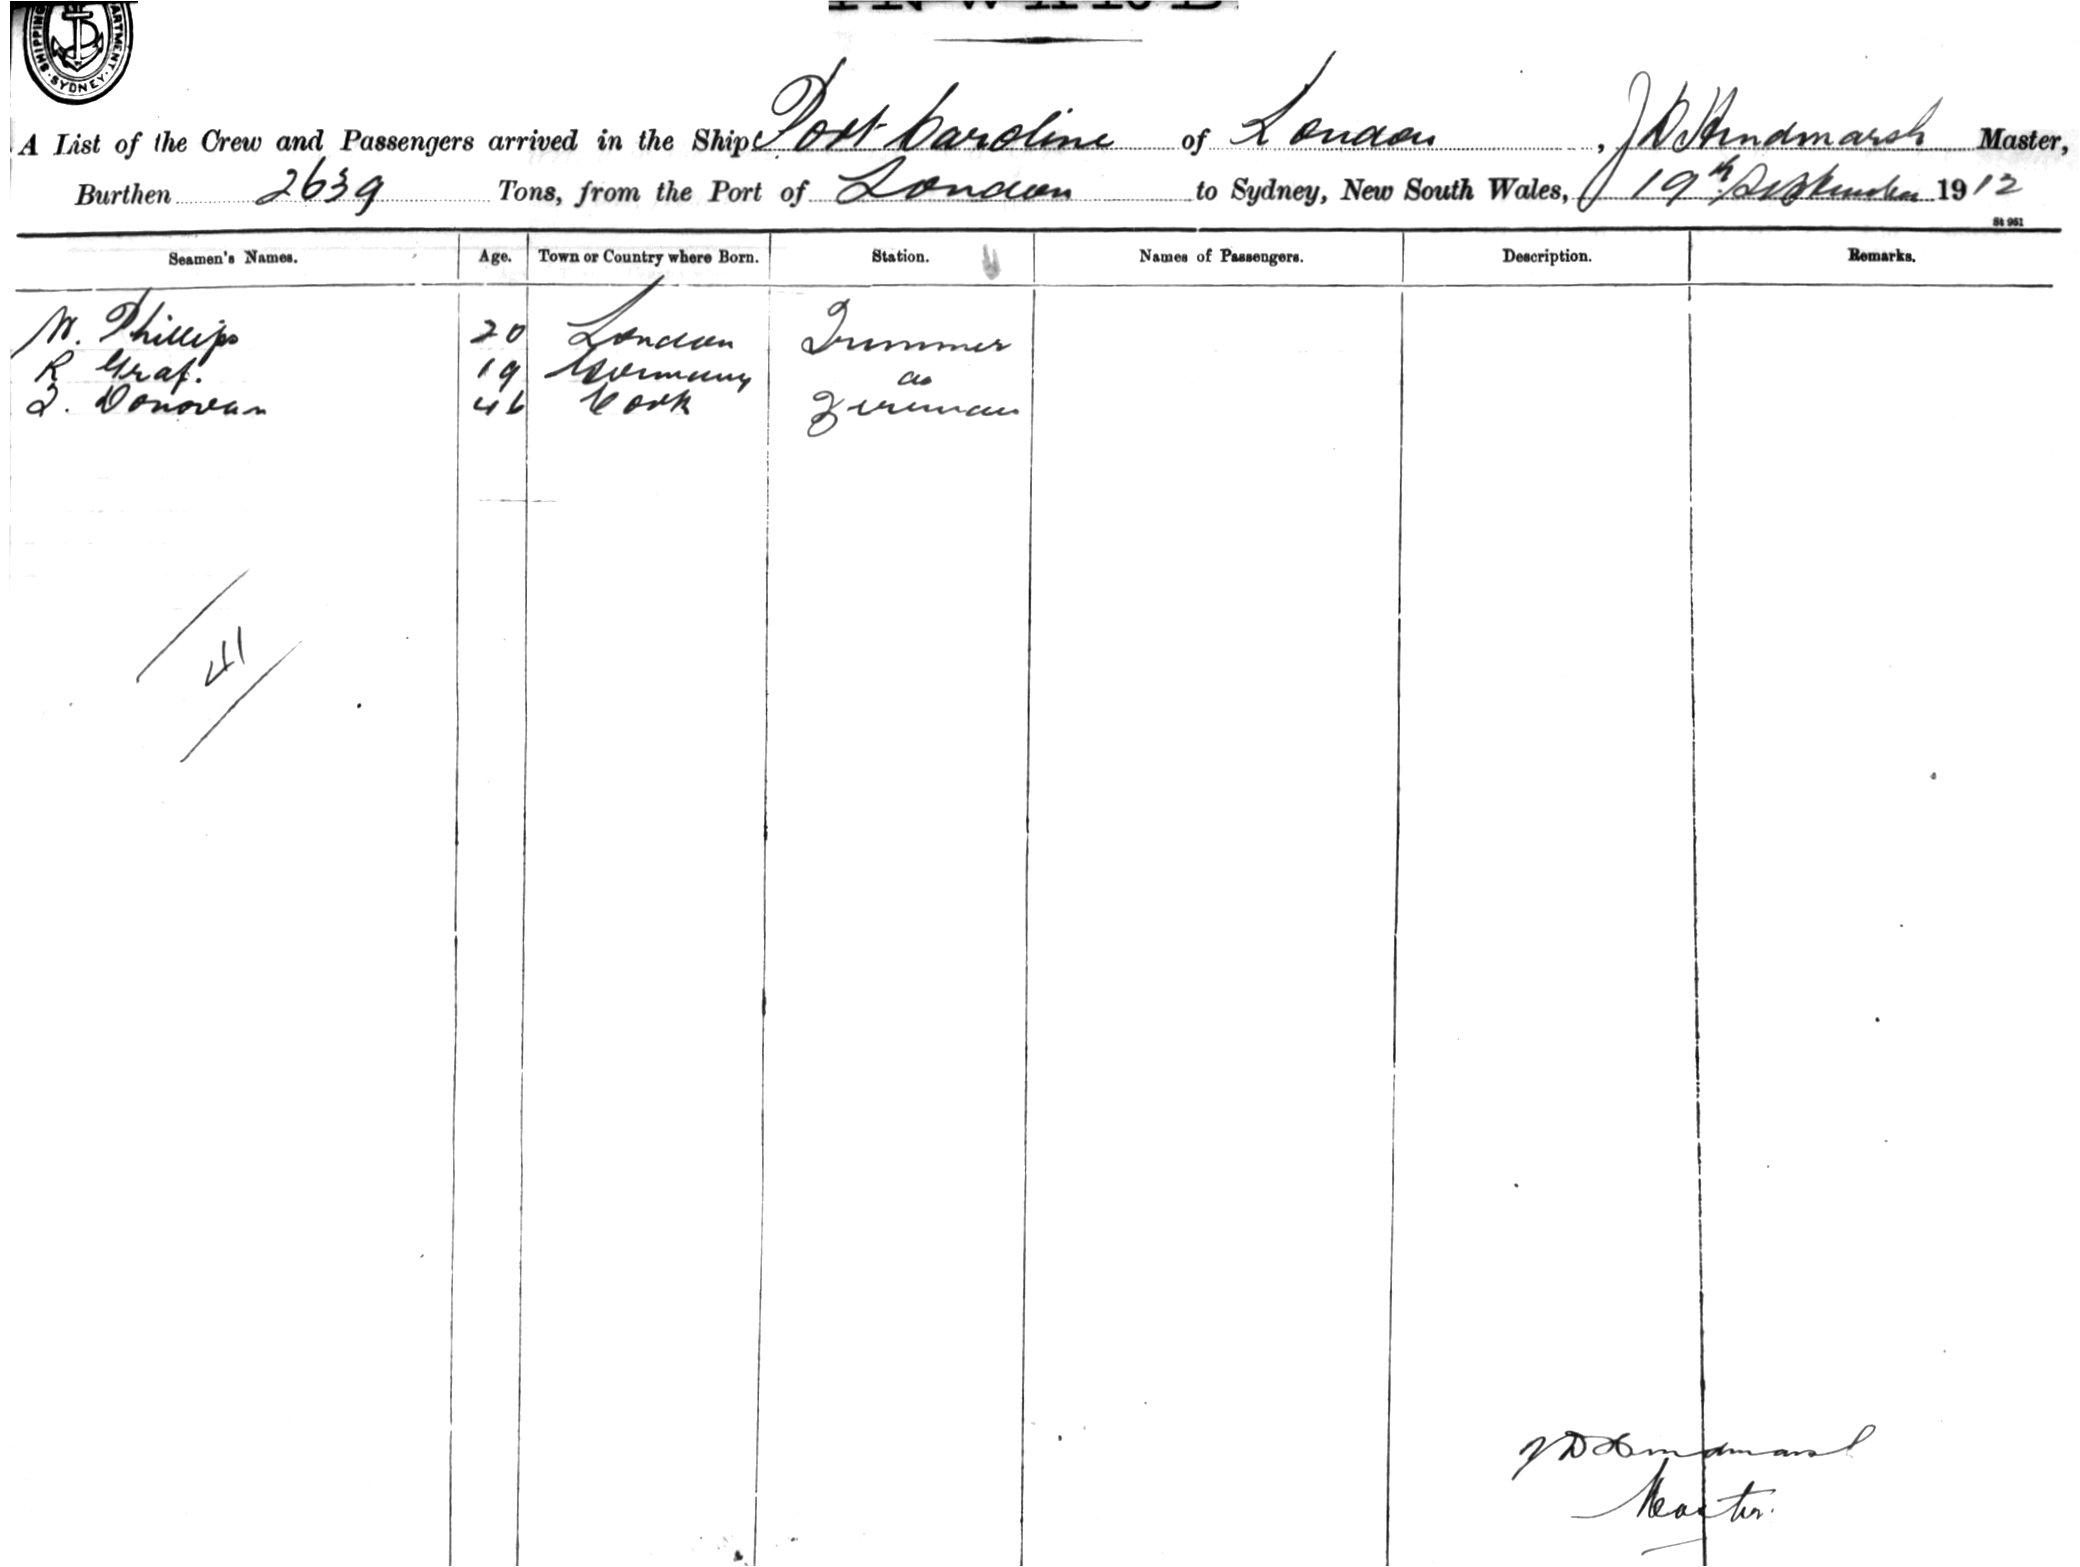 SHIPPING DEPARTMENT SYDNEY
INWARD
A List of the Crew and Passengers arrived in the Ship Port Caroline of London, J D Hindmarsh Master,
Burthen 2639 Tons, from the Port of London to Sydney, New South Wales, 19th September 1912
St 961
Seamen's Names. Age. Town or Country where Born. Station. Names of Passengers. Description. Remarks.
W. Phillips 20 London Trimmer
R Graf. 19 Germany do
J. Donovan 46 Cork Fireman
41
J D Hindmarsh
Master.